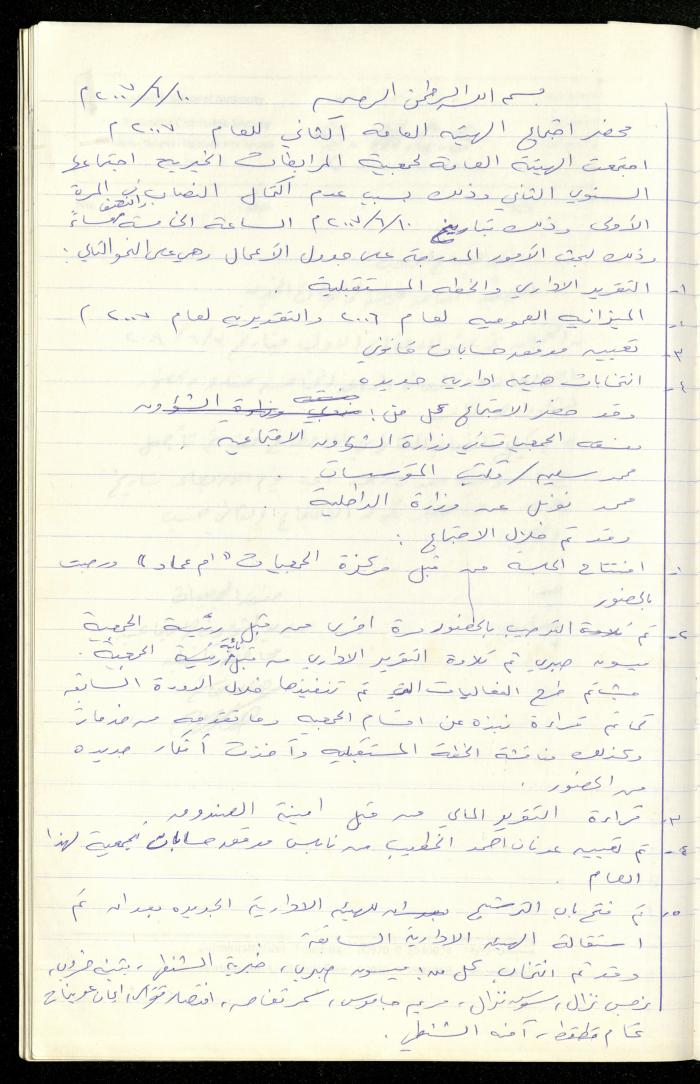 بسم الله الرحمن الرحيم ٢٠٠٧/٦/١٠م
محضر اجتماع الهيئة العامة الثاني للعام ٢٠٠٧م
اجتمعت الهيئة العامة لجمعية المرابطات الخيرية اجتماعها
السنوي الثاني وذلك بسبب عدم اكتمال النصاب في المرة
الأولى وذلك بتاريخ ٢٠٠٧/٦/١٠م الساعة الخامسة والنصف مساءً
وذلك لبحث الأمور المدرجة على جدول الأعمال وهي على النحو التالي:
١- التقرير الاداري والخطه المستقبلية.
٢- الميزانيه العموميه لعام ٢٠٠٦ والتقديريه لعام ٢٠٠٧م
٣- تعيين مدقق حسابات قانوني
٤- انتخابات هيئه اداريه جديده
وقد حضر الاجتماع كل من: وزارة الشؤون
منسقة الجمعيات في وزارة الشؤون الاجتماعية
محمد سليم / المؤسسات
محمد نوفل عن وزارة الداخلية
وقد تم خلال الاجتماع:
١- افتتاح الجلسه من قبل مركزة الجمعيات "ام عماد" ورحبت
بالحضور
٢- تم الترحيب بالحضور مرة اخرى من قبل رئيسة الجمعية
ميسون صبري تم تلاوة التقرير الاداري من قبل نائبة رئيسة الجمعية.
حيث تم طرح الفعاليات التي تم تنفيذها خلال الدورة السابقه
كما تم قراءة نبذه عن اقسام الجمعيه وما تقدمه من خدمات
وكذلك مناقشة الخطة المستقبليه وأخذت أفكار جديده
من الحضور.
٣- قراءة التقرير المالي من قبل امينة الصندوق.
٤- تم تعيين عدنان احمد الخطيب من نابلس مدقق حسابات للجمعية لهذا
العام.
٥- تم فتح باب الترشيح للهيئه الادارية الجديده بعد ان تم
استقالة الهيئه الادارية السابقة
وقد تم انتخاب كل من: ميسون صبري، خيرية الشنطي، بثينه
نرجس نزال، سوسن نزال، مريم جاموس، سحر، انتصار، ايمان
ختام قطقط، آمنه الشنطي.